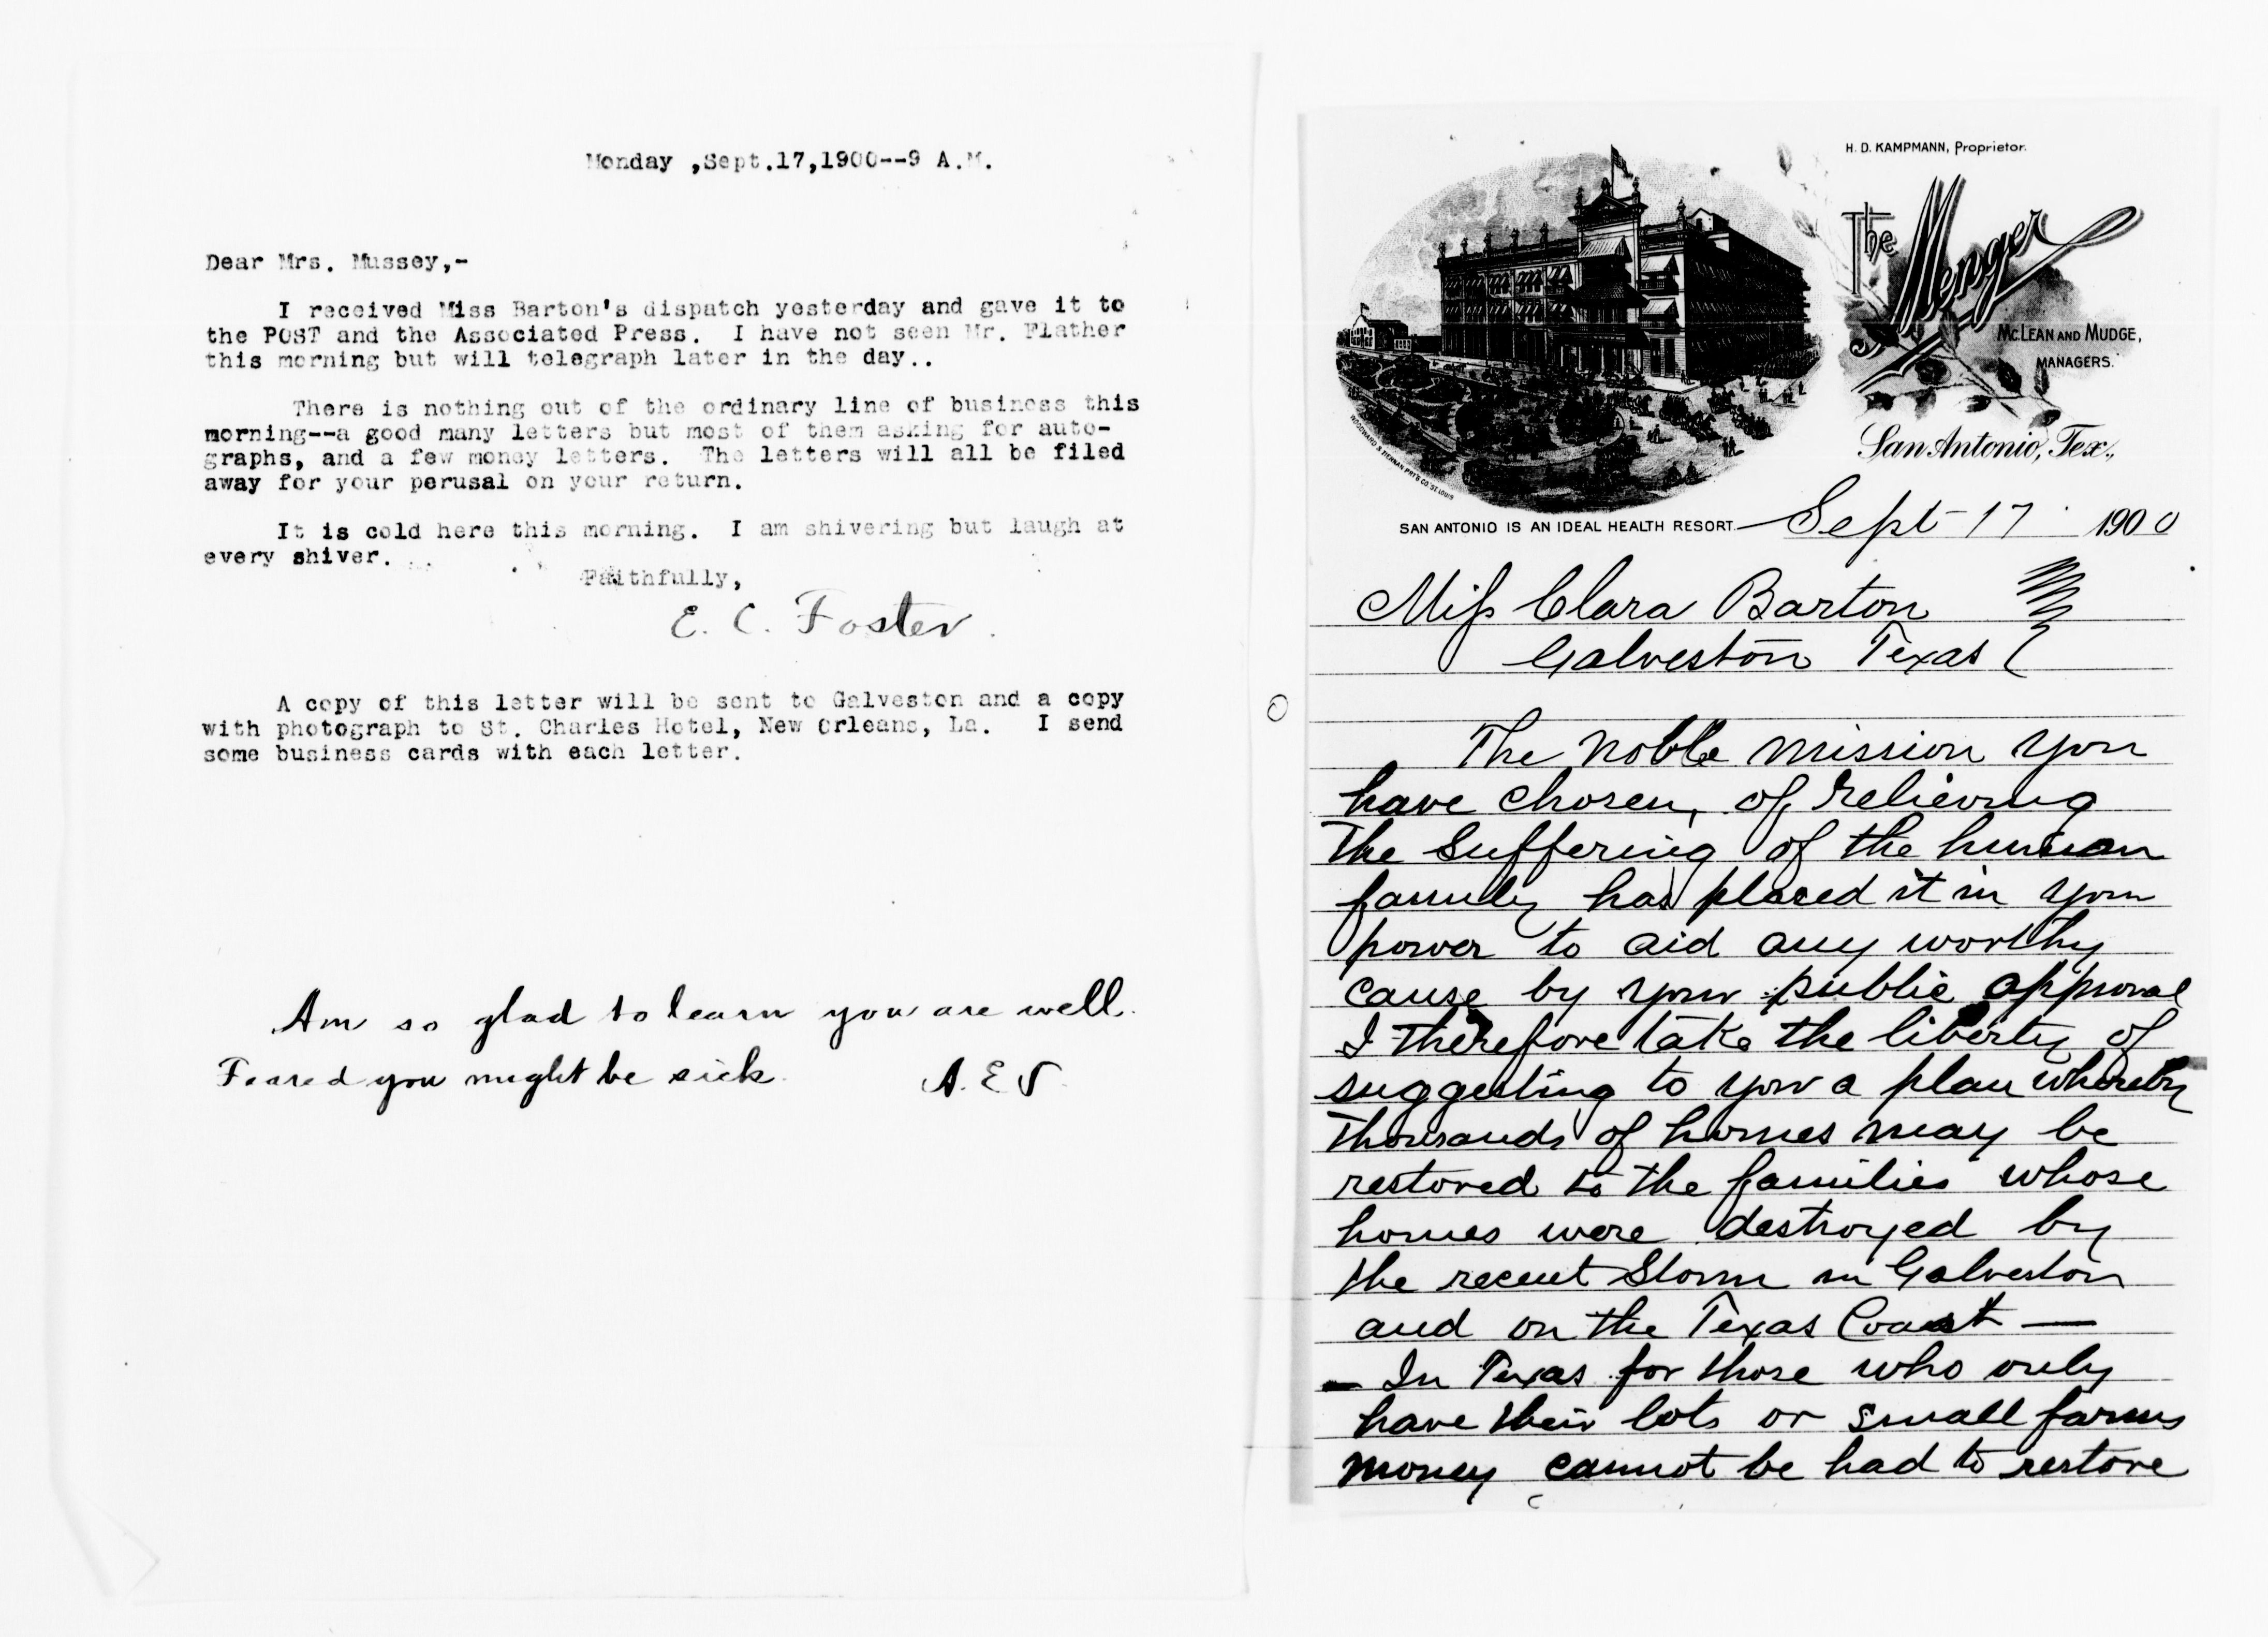 Monday ,Sept.17,1900--9 A.M.
Dear Mrs. Mussey,-
I received Miss Barton's dispatch yesterday and gave it to
the POST and the Associated Press. I have not seen Mr. Flather
this morning but will telegraph later in the day..
There is nothing out of the ordinary line of business this
morning--a good many letters but most of them asking for auto-
graphs, and a few money letters. The letters will all be filed
away for your perusal on your return.
It is cold here this morning. I am shivering but laugh at
every shiver.
Faithfully,
E. C. Foster.
A copy of this letter will be sent to Galveston and a copy
with photograph to St. Charles Hotel, New Orleans, La. I send
some business cards with each letter.
Am so glad to learn you are well.
Feared you might be sick.
H. D. KAMPMANN, Proprietor.
The Menger
McLEAN AND MUDGE,
MANAGERS.
San Antonio, Tex.,
WOODWARD & TIERNAN PRT'G CO. ST. LOUIS
SAN ANTONIO IS AN IDEAL HEALTH RESORT. Sept 17 1900
Miss Clara Barton
Galveston Texas
The noble mission you
have chosen, of relieving
the suffering of the human
family has placed it in your
power to aid any worthy
cause by your public approval
I therefore take the liberty of
suggesting to you a plan whereby
thousands of homes may be
restored to the families whose
homes were destroyed by
the recent Storm in Galveston
and on the Texas Coast —
— In Texas for those who only
have their lots or small farms
money cannot be had to restore